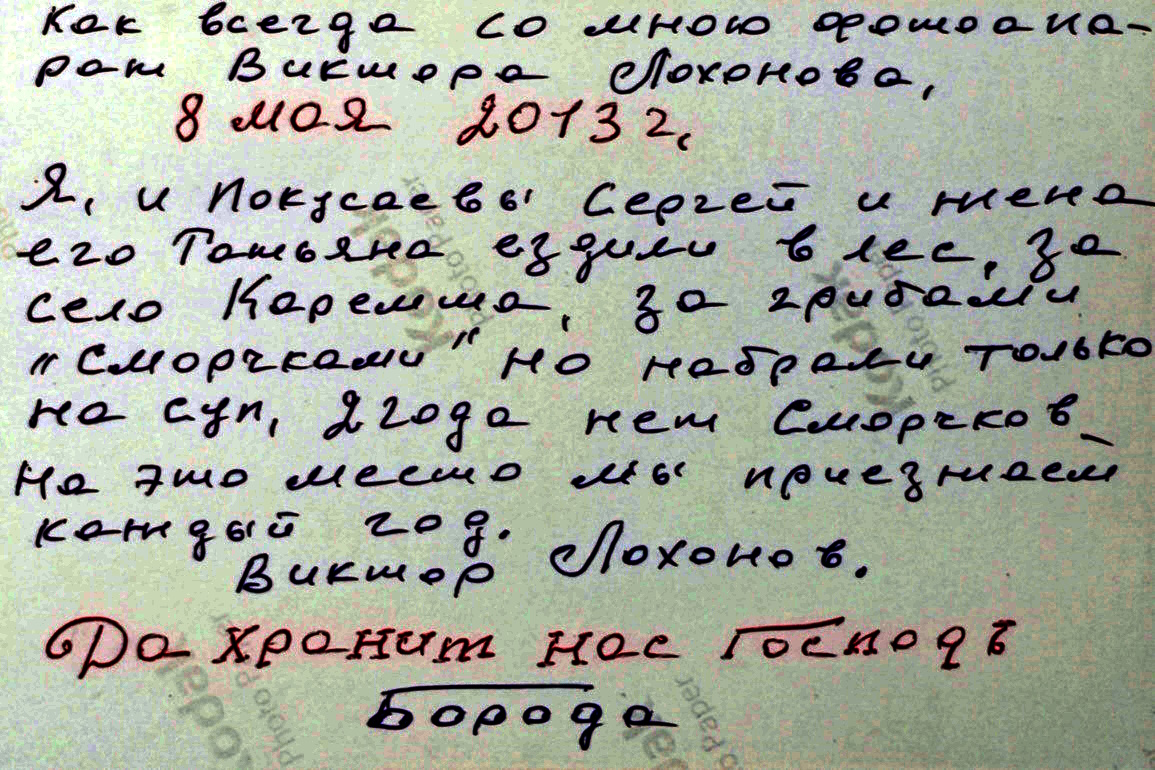 Как всегда со мною фотоапа-
рат Виктора Лохонова,
8 мая 2013 г,
Я, и Покусаевы Сергей и жена
его Татьяна ездили в лес, за
село Каремша, за грибами
"Сморчками" но набрали только
на суп, 2 года нет Сморчков
На это место мы приезжаем
каждый год.
Виктор Лохонов.
Да хранит нас Господь
Борода
Kodak
Photo Paper
Kodak
Photo Paper
Kodak
Photo Paper